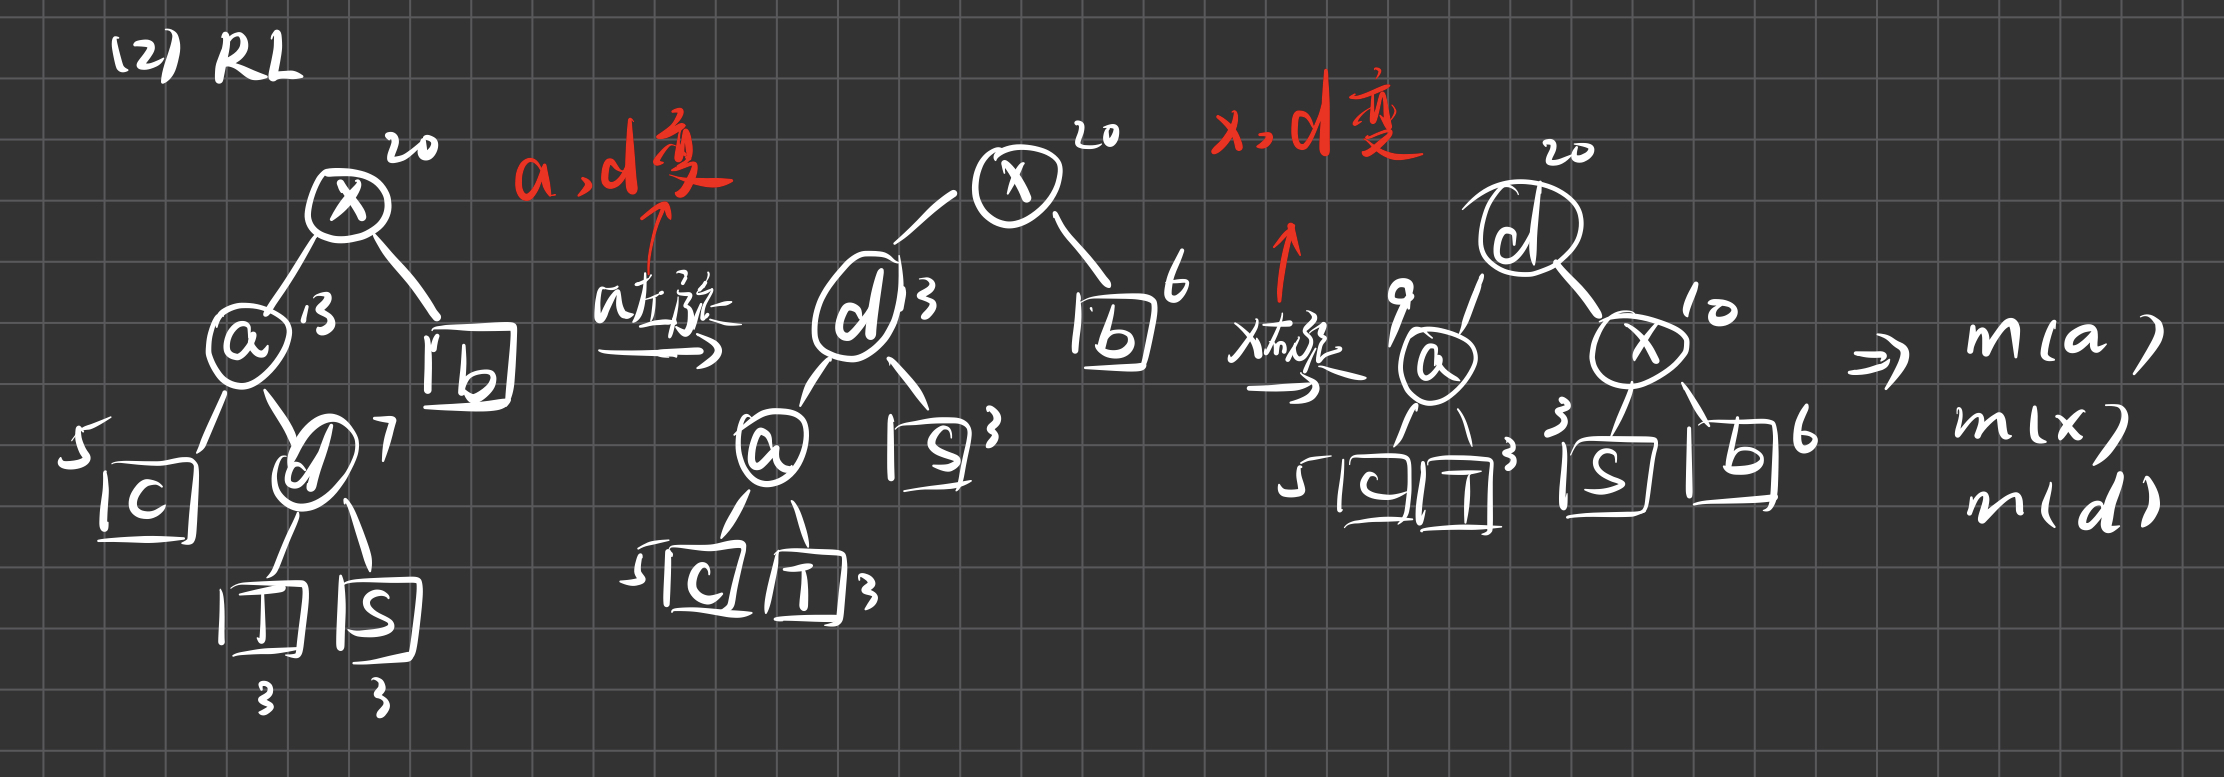 (2) RL
20
x
a 13
b
5
C
d 7
T S
3 3
a,d变
a左旋
20
x
d 13
b 6
a
S 3
5 C T 3
x,d变
x右旋
20
d
9 a
x 10
5 C T 3
3 S b 6
⇒ m(a)
m(x)
m(d)